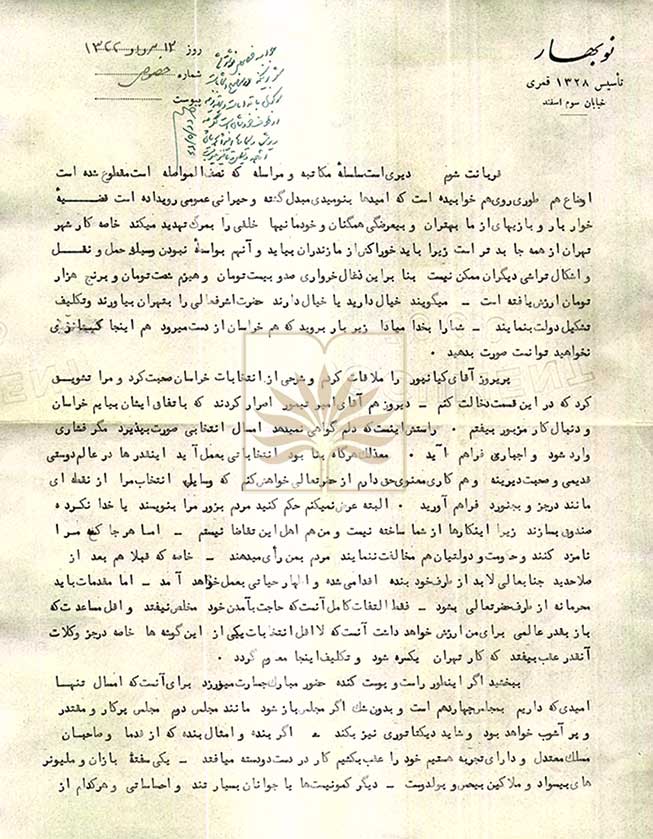 نوبهار
تأسیس ۱۳۲۸ قمری
خیابان سوم اسفند
روز ۱۲ مرداد ۱۳۲۲
شماره خصوصی
پیوست
قربانت شوم دیری است سلسلهٔ مکاتبه و مراسله که نصف المواصله است مقطوع شده است
اوضاع هم طوری روی هم خوابیده است که امیدها بنومیدی مبدل گشته و حیرانی عمومی رویداده است قضیهٔ
خوار بار و بازیهای از ما بهتران و بیعرضگی همگنان و خودمانیها خلقی را بمرک تهدید میکند خاصه کار شهر
تهران از همه جا بدتر است زیرا باید خوراکش از مازندران بیاید و آنهم بواسطهٔ نبودن وسیلهٔ حمل و نقل
و اشکال تراشی دیگران ممکن نیست بنا براین ذغال خرواری صدو بیست تومان و هیزم شصت تومان و برنج هزار
تومان ارزش یافته است ــ میگویند خیال دارید یا خیال دارند حضرت اشرفعالی را بتهران بیاورند وتکلیف
تشکیل دولت بنمایند ــ شما را بخدا مبادا زیر بار بروید که هم خراسان از دست میرود هم اینجا
نخواهید توانست صورت بدهید ۰
پریروز آقای کیانپور را ملاقات کردم و شرحی از انتخابات خراسان صحبت کرد و مرا تشویق
کرد که در این قسمت دخالت کنم ــ دیروز هم آقای امیر تیمور اصرار کردند که باتفاق ایشان بیایم خراسان
و دنبال کار مزبور بیفتم ۰ راستش اینست که دلم گواهی نمیدهد امسال انتخاباتی صورت بپذیرد مگر فشاری
وارد شود و اجباری فراهم آید ۰ معذلك هرگاه بنا بود انتخاباتی بعمل آید اینقدرها در عالم دوستی
قدیمی و صحبت دیرینه و هم کاری معنوی حق دارم از حضرتعالی خواهش کنم که وسایل انتخاب مرا از نقطه ای
مانند درجز و بجنورد فراهم آورید ۰ البته عرض نمیکنم حکم کنید مردم بزور مرا بنویسند یا خدا نکرده
صندوق بسازند زیرا اینکارها از شما ساخته نیست و من هم اهل این تقاضا نیستم ــ اما هر جا که مرا
نامزد کنند و حکومت و دولتیان هم مخالفت ننمایند مردم بمن رأی میدهند ــ خاصه که قبلا هم بعد از
صلاحدید جنابعالی لابد از طرف خود بنده اقدامی شده و اظهار حیاتی بعمل خواهد آمد ــ اما مقدمات باید
محرمانه از طرف حضرتعالی بشود ــ فقط التفات کامل آنست که حاجت بآمدن خود مخلص نیفتد و اقل مساعدت که
باز بقدر عالمی برای من ارزش خواهد داشت آنست که لااقل انتخابات یکی از این گوشه ها خاصه درجز وکلات
آنقدر عقب بیفتد که کار تهران یکسره شود و تکلیف اینجا معلوم گردد ۰
ببخشید اگر اینطور راست و پوست کنده حضور مبارك جسارت میورزد برای آنست که امسال تنها
امیدی که داریم بمجلس چهاردهم است و بدون شك اگر مجلس باز شود مانند مجلس دوم مجلس پرکار و مقتدر
و پر آشوب خواهد بود و شاید دیکتاتوری نیز بکند ــ اگر بنده و امثال بنده که از قدما و صاحبان
مسلك معتدل و دارای تجربه هستیم خود را عقب بکشیم کار در دست دودسته میافتد ــ یکی سفته بازان و ملیونر
های بیسواد و ملاکین بیحس و پولدوست ــ دیگر کمونیست ها یا جوانان بسیار تند و احساساتی و هرکدام از